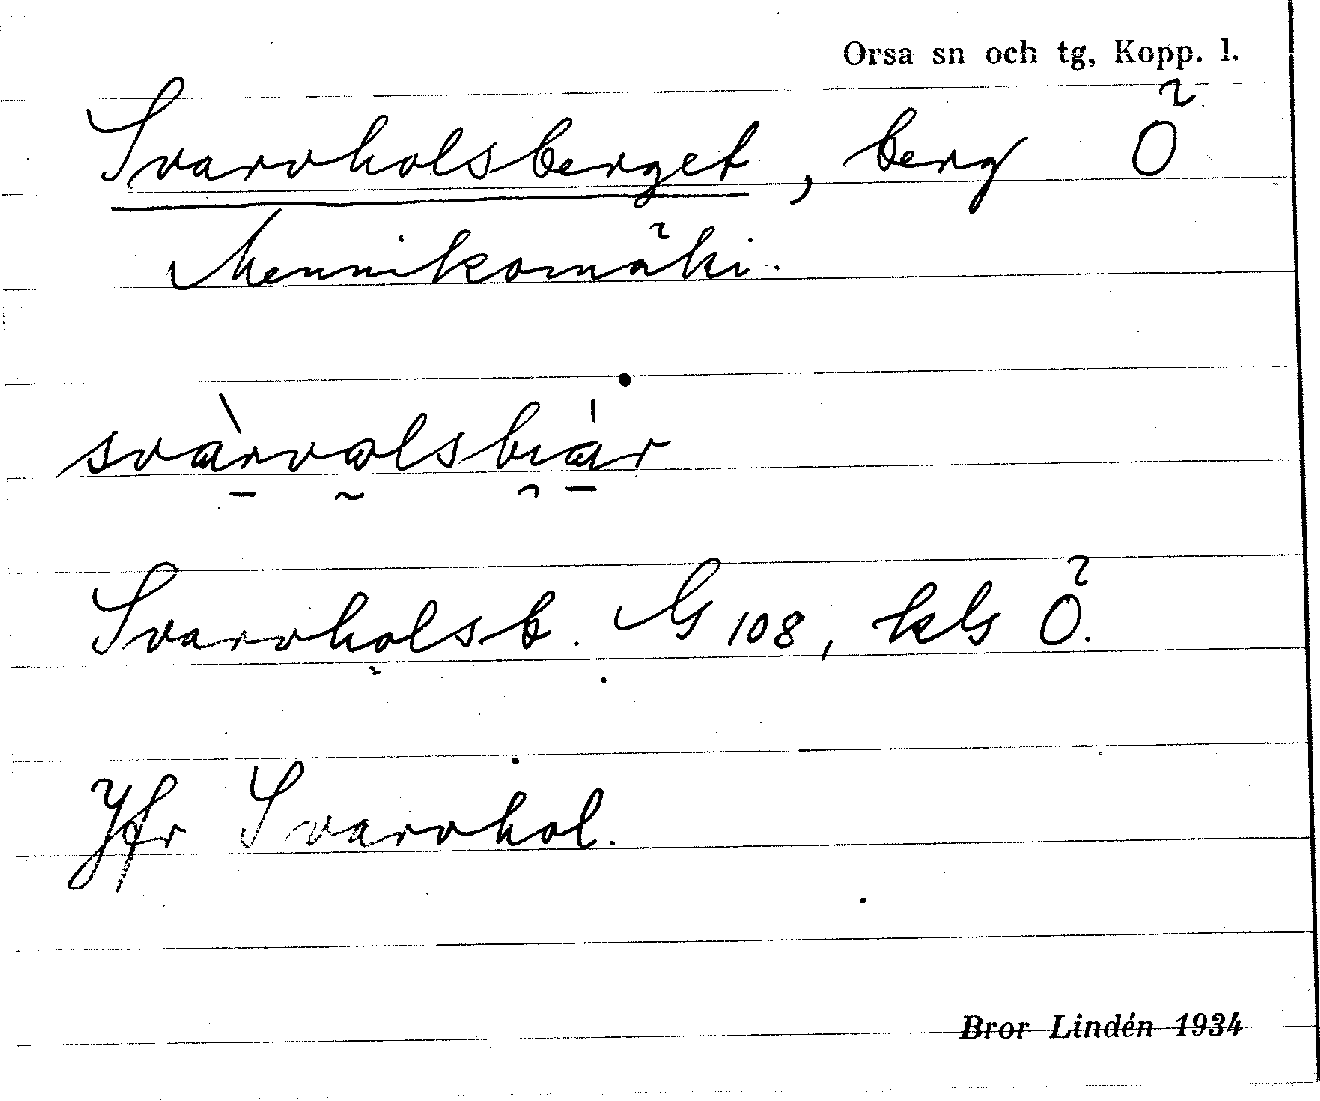 Orsa sn och tg, Kopp. l.
Svarvholsberget, berg Ö
Mennikomäki.
svàrvalsbıár
Svarvholsb. G 108, kls Ö.
Jfr Svarvhol.
Bror Lindén 1934